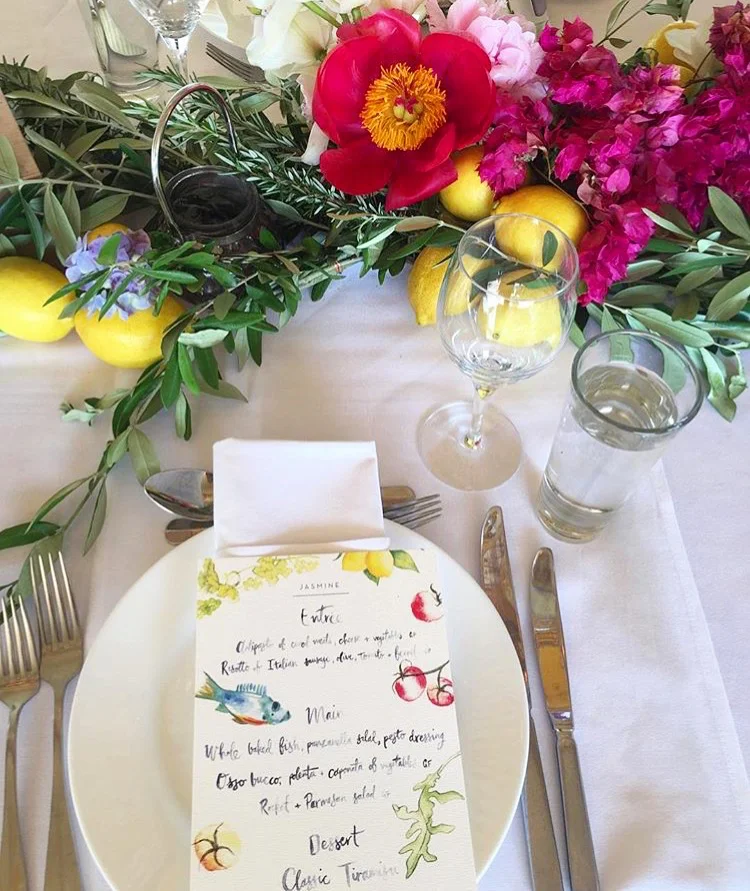 JASMINE
Entrée
Antipasto of cured meats, cheese + vegetables GF
Risotto of Italian sausage, olive, tomato + fennel GF
Main
Whole baked fish, panzanella salad, pesto dressing
Osso bucco, polenta + caponata of vegetables GF
Rocket + Parmesan salad GF
Dessert
Classic Tiramisu